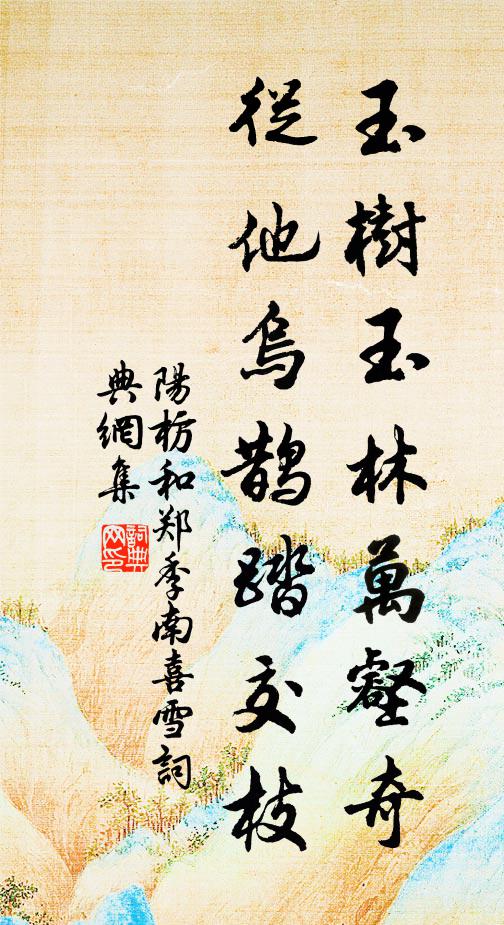 玉樹玉林萬壑奇
從他烏鵲踏交枝
陽枋和郑季南喜雪詞
典網集
詞典
网印